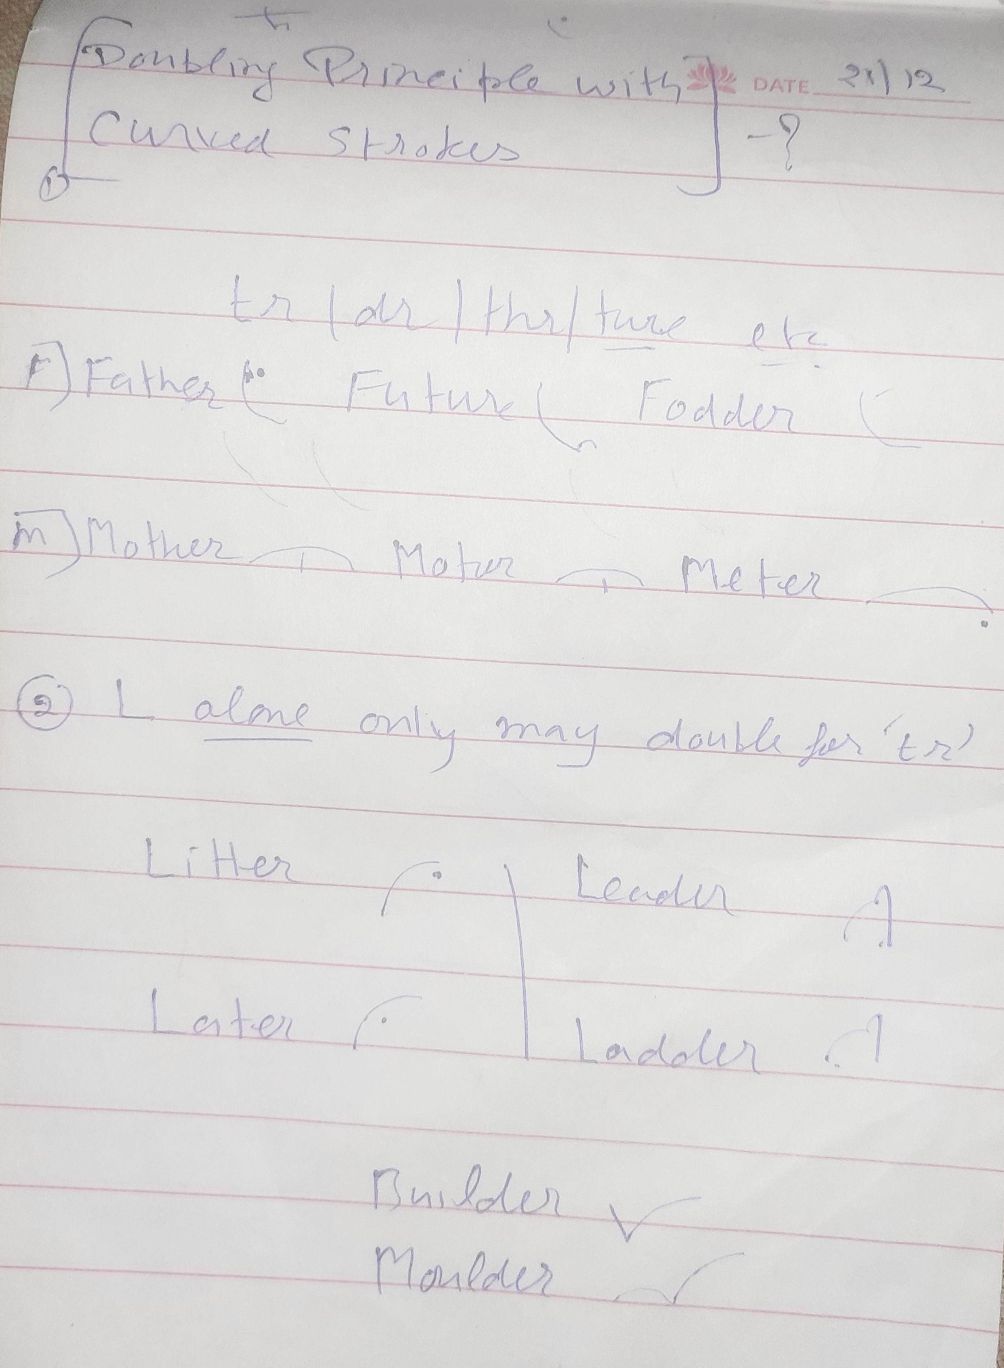 Doubling Principle with
DATE 21/12
Curved Strokes - ?
①
tr / dr / thr / ture etc.
F) Father Future Fodder
m) Mother Motor Meter
② L alone only may double for 'tr'
Litter Leader
Later Ladder
Builder
Moulder